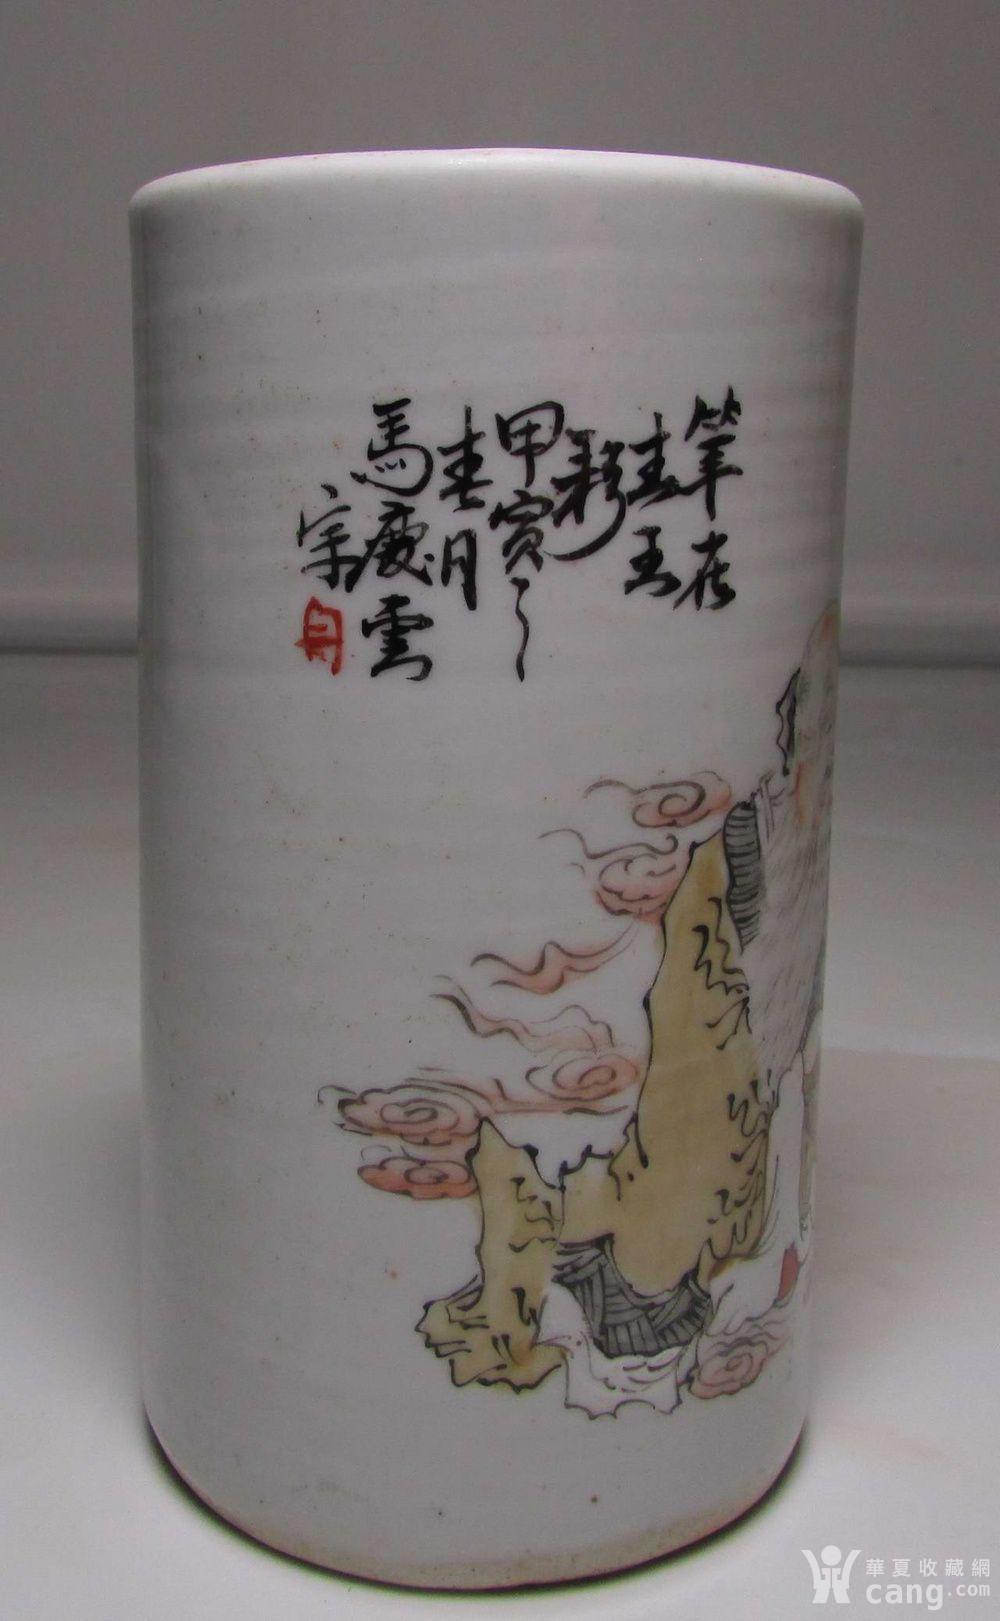 筆在
春王
甲寅之
春月
馬慶雲
宗
華夏收藏網
cang.com